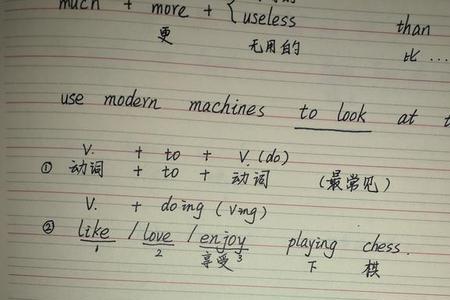 much + more + { useless than
更 无用的 比...
use modern machines to look at
V. + to + V. (do)
① 动词 + to + 动词 (最常见)
V. + doing (Ving)
② like / love / enjoy playing chess.
1 2 享受 3 下 棋